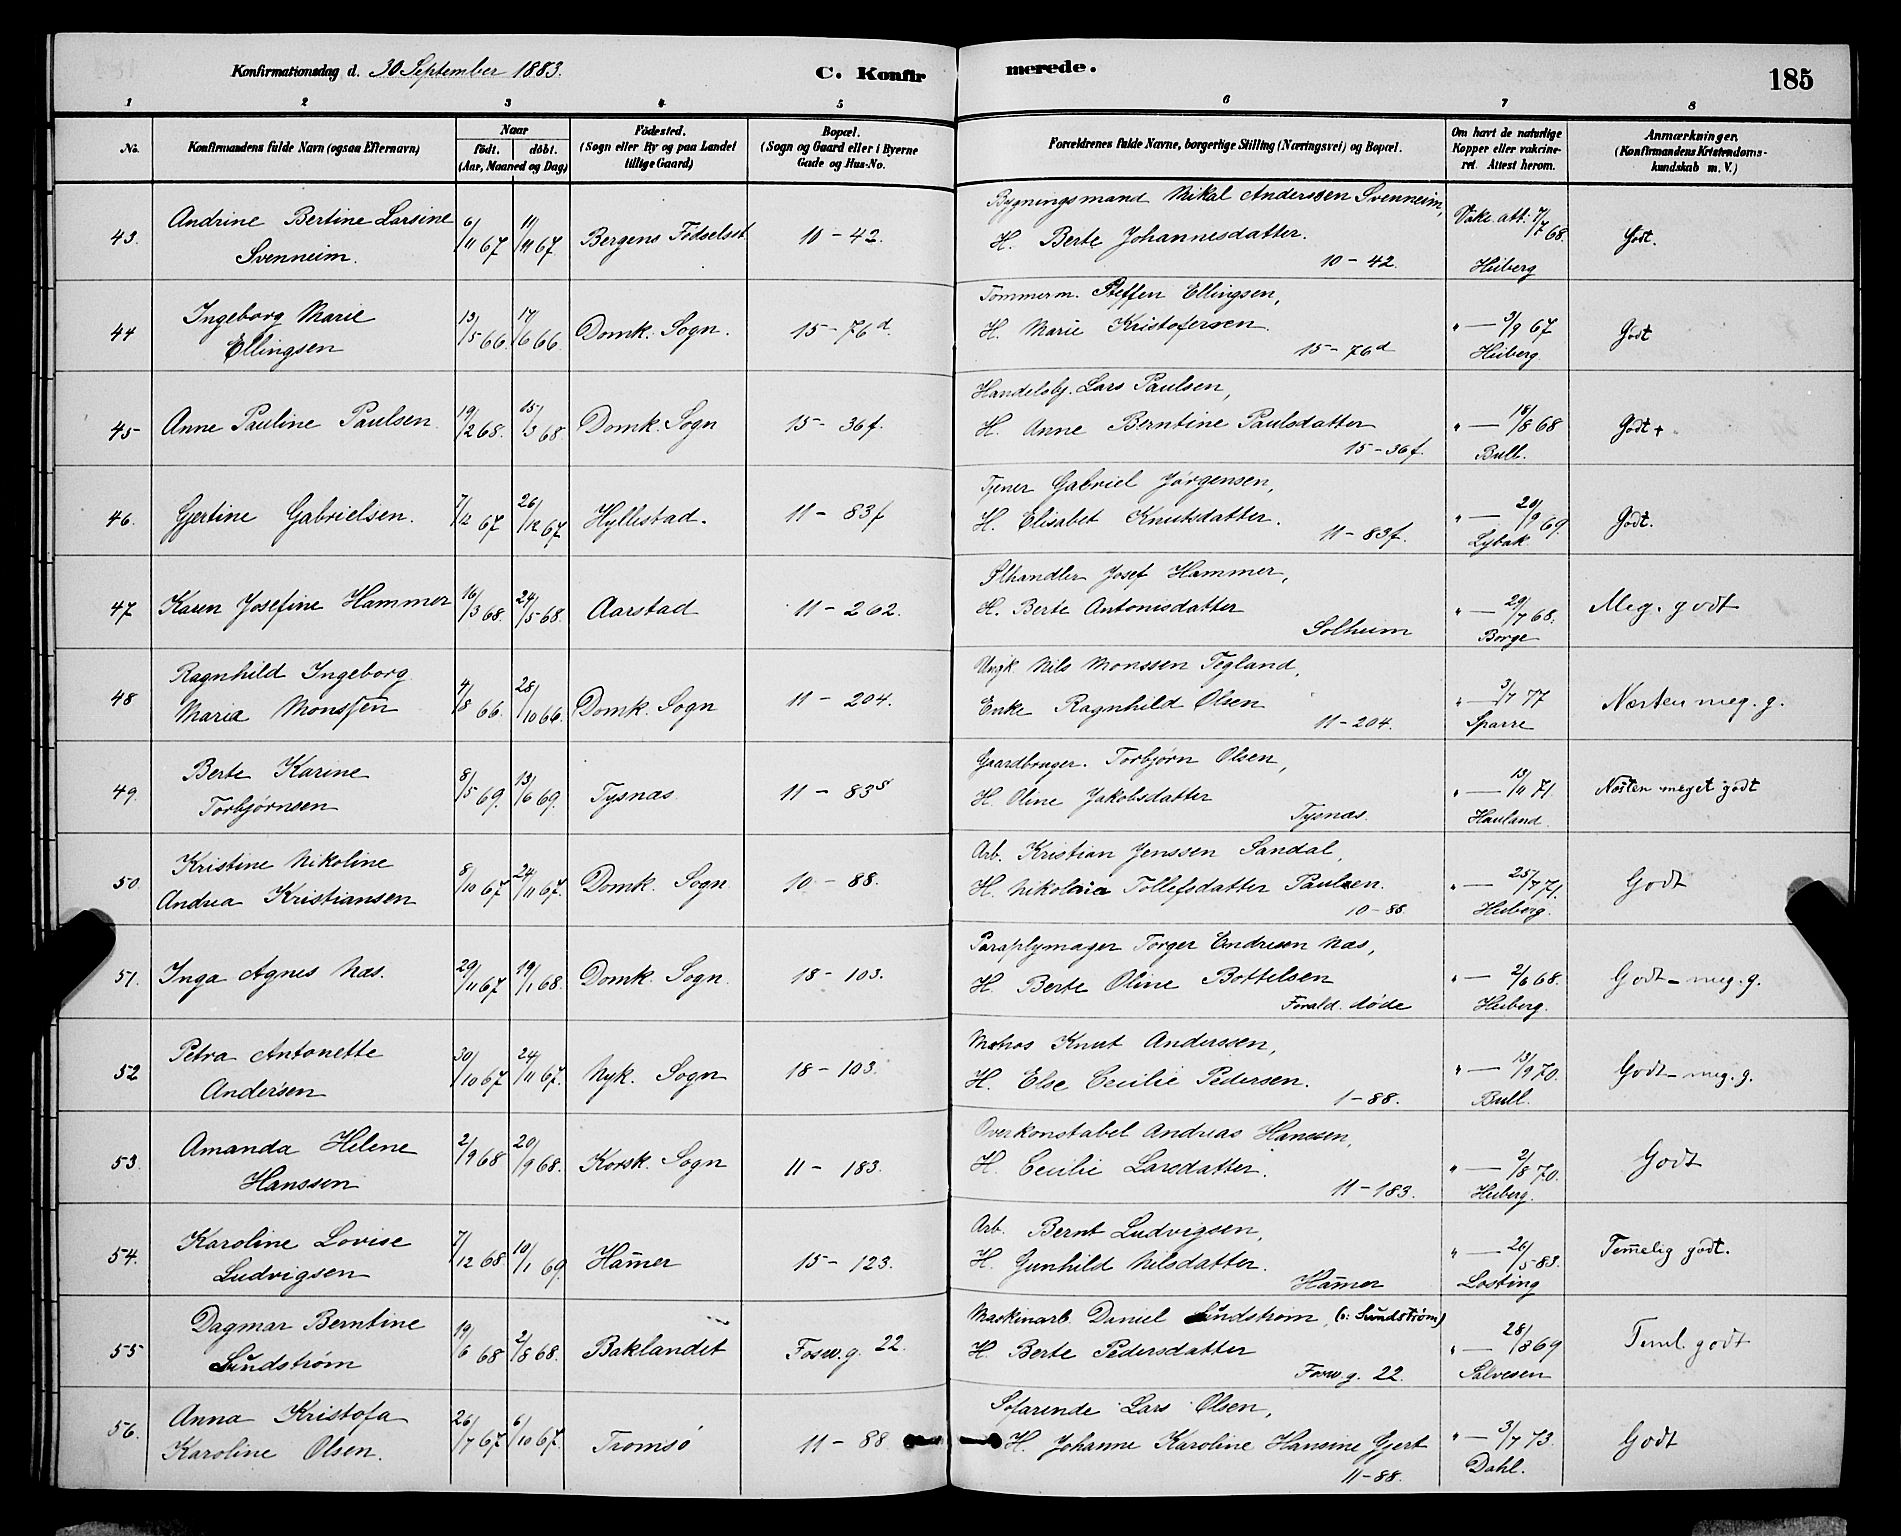 Konfirmationsdag d. 30 September 1883. C. Konfirmerede. 185
1 2 3 4 5 6 7 8
No. Konfirmandens fulde Navn (ogsaa Efternavn) Naar födt. döbt. (Aar, Maaned og Dag) Födested. (Sogn eller By og paa Landet tillige Gaard) Bopæl. (Sogn og Gaard eller i Byerne Gade og Hus-No. Forældrenes fulde Navne, borgerlige Stilling (Næringsvei) og Bopæl. Om havt de naturlige Kopper eller vakcineret. Attest herom. Anmærkninger. (Konfirmandens Kristendomskundskab m. V.)
43. Andrine Bertine Larsine Svenneim. 6/11 67 11/11 67 Bergens Fødselsst. 10-42. Bygningsmand Mikal Anderssen Svenneim,
H. Berte Johannesdatter. 10-42. Vakc. att. 7/7 68. Heiberg Godt.
44 Ingeborg Marie Ellingsen 13/5 66. 17/6 66. Domk. Sogn. 15-76d. Tømmerm. Steffen Ellingsen,
H. Marie Kristofersen. 15-76d " — 3/9 67 Heiberg Godt
45 Anne Pauline Paulsen. 19/2 68. 15/3 68. Domk. Sogn 15-36f. Handelsbj. Lars Paulsen,
H. Anne Berntine Paulsdatter 15-36f. " — 18/8 68 Bull. Godt +
46. Gjertine Gabrielsen. 7/12 67 26/12 67 Hyllestad. 11-83f Tjener Gabriel Jørgensen,
H. Elisabet Knutsdatter. 11-83f. " — 20/9 69. Lybæk Godt.
47 Karen Josefine Hammer 16/3 68. 24/5 68. Aarstad 11-262. Ølhandler Josef Hammer,
H. Berte Antonisdatter Solheim " — 29/7 68. Borge Meg. godt
48 Ragnhild Ingeborg Maria Monssen 4/8 66. 28/10 66. Domk. Sogn 11-204. Nils Monssen Tegland,
Enke Ragnhild Olsen 11-204. " — 3/7 77 Sparre Næsten meg. g.
49. Berte Karine Torbjørnsen 8/5 69. 13/6 69. Tysnæs 11-83s Gaardbruger. Torbjørn Olsen,
H. Oline Jakobsdatter Tysnæs. " — 13/11 71 Hauland. Næsten meget godt
50. Kristine Nikoline Andrea Kristiansen 8/10 67 24/11 67. Domk. Sogn. 10-88. Arb. Kristian Jenssen Sandal,
H. Nikolaia Tollefsdatter Paulsen. 10-88. " — 25/7 71. Heiberg. Godt
51. Inga Agnes Næs. 29/11 67 19/1 68. Domk. Sogn. 18-103. Paraplymager Torger Endresen Næs,
H. Berte Oline Bottelsen Foræld. døde " — 2/6 68. Heiberg. Godt - meg. g.
52 Petra Antonette Andersen 30/10 67 24/11 67. Nyk. Sogn 18-103. Matros Knut Anderssen,
H. Else Cecilie Pedersen. 1-88. " — 13/9 70. Bull. Godt - meg. g.
53. Amanda Helene Hanssen 2/9 68 20/9 68. Korsk. Sogn 11-183. Overkonstabel Andreas Hanssen,
H. Cecilie Larsdatter. 11-183. " — 2/8 70. Heiberg. Godt
54. Karoline Lovise Ludvigsen 7/12 68 10/1 69. Ham̄er 15-123. Arb. Bernt Ludvigsen,
H. Gunhild Nilsdatter. Ham̄er " — 26/5 83. Losting Tem̄elig godt.
55 Dagmar Berntine Sundstrøm 19/6 68 2/8 68. Baklandet Fosw.g. 22. Maskinarb. Daniel Sundstrøm, (o: Sundstrøm)
H. Berte Pedersdatter Fosw.g. 22. " — 28/8 69 Salvesen Teml. godt
56. Anna Kristofa Karoline Olsen. 26/7 67 6/10 67. Tromsø 11-88 Søfarende Lars Olsen,
H. Johanne Karoline Hansine Gjert 11-88. " — 3/7 73. Dahl. Godt